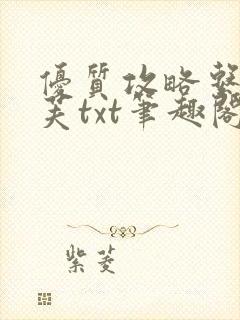 優質攻略整
芙txt筆趣閣
紫菱